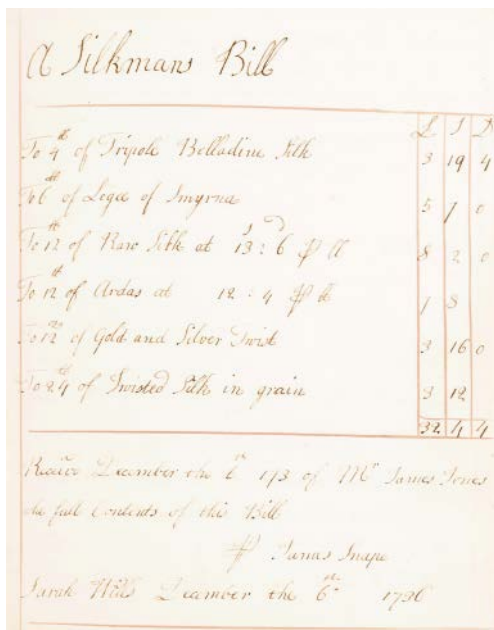 A Silkmans Bill
£ S D
To 4 lb of Tripole Belladine Silk 3 19 4
To 6 lb of Legee of Smyrna 5 1 0
To 12 lb of Raw Silk at 13 s : 6 d ℔ lb 8 2 0
To 12 lb of Ardas at 12 : 4 ℔ lb 7 8
To 12 oz of Gold and Silver Twist 3 16 0
To 24 lb of Twisted Silk in grain 3 12
32 4 4
December the 6th 173 of Mr James Jones
the full Contents of this Bill
Snape
Sarah Wills December the 6th 1736